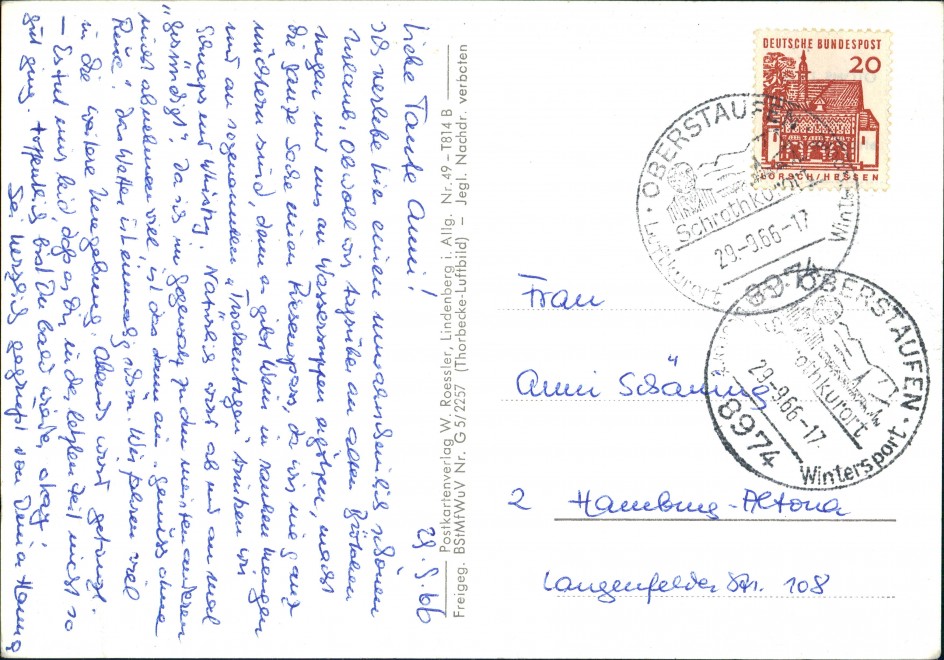 28.9.66
Liebe Tante Anni!
Ich verlebe hier einen unwahrscheinlich schönen
Urlaub. Obwohl wir tagsüber an allen größten
wegen und uns an Wassersuppen ergötzen, macht
die ganze Sache einen Riesenspass, da wir nie ganz
nüchtern sind, denn es gibt Wein in rauhen Mengen
und an sogenannten "Trockentagen" trinken wir
Schnaps und Whisky. Natürlich wird ab und an mal
"gesündigt". Da ich im Gegensatz zu den meisten anderen
nicht abnehmen will, ist das dann ein "Genuss ohne
Reue". Das Wetter ist einmalig schön. Wir fahren viel
in die weitere Umgebung. Abends wird getanzt.
– Es tut mir leid, dass es Dir in der letzten Zeit nicht so
gut ging. Hoffentlich bist Du bald wieder okay!
Sei herzlich gegrüßt von Deiner Hanna
Postkartenverlag W. Roessler, Lindenberg i. Allg. Nr. 49 – T814 B
Freigeg. BStMfWuV Nr. G 5/2257 (Thorbecke-Luftbild) – Jegl. Nachdr. verboten
DEUTSCHE BUNDESPOST
20
LORSCH/HESSEN
OBERSTAUFEN
Schrothkurort
29.-9.66-17
Luftkurort
Winter
8974
OBERSTAUFEN
othkurort
29.-9.66-17
8974
Wintersport
Frau
Anni Schäning
2 Hamburg-Altona
Langenfelder Str. 108